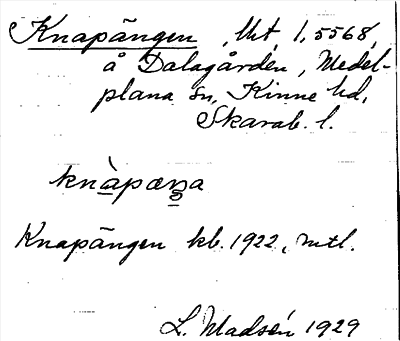 Knapängen, Mt 1,5568,
å Dalagården, Medel-
plana sn, Kinne hd,
Skarab. l.
knàpæŋa
Knapängen kb. 1922, mtl.
L. Madsén 1929